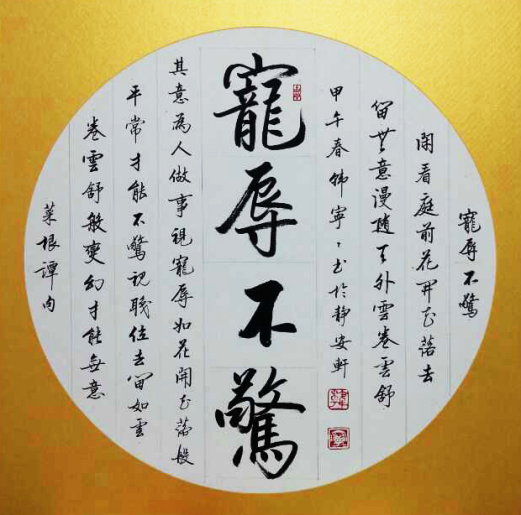 寵辱不驚
閑看庭前花開花落去
留無意漫隨天外雲卷雲舒
甲午春韓寧、書於靜安軒
寵辱不驚
其意為人做事視寵辱如花開花落般
平常才能不驚視職位去留如雲
卷雲舒般變幻才能無意
菜根譚句